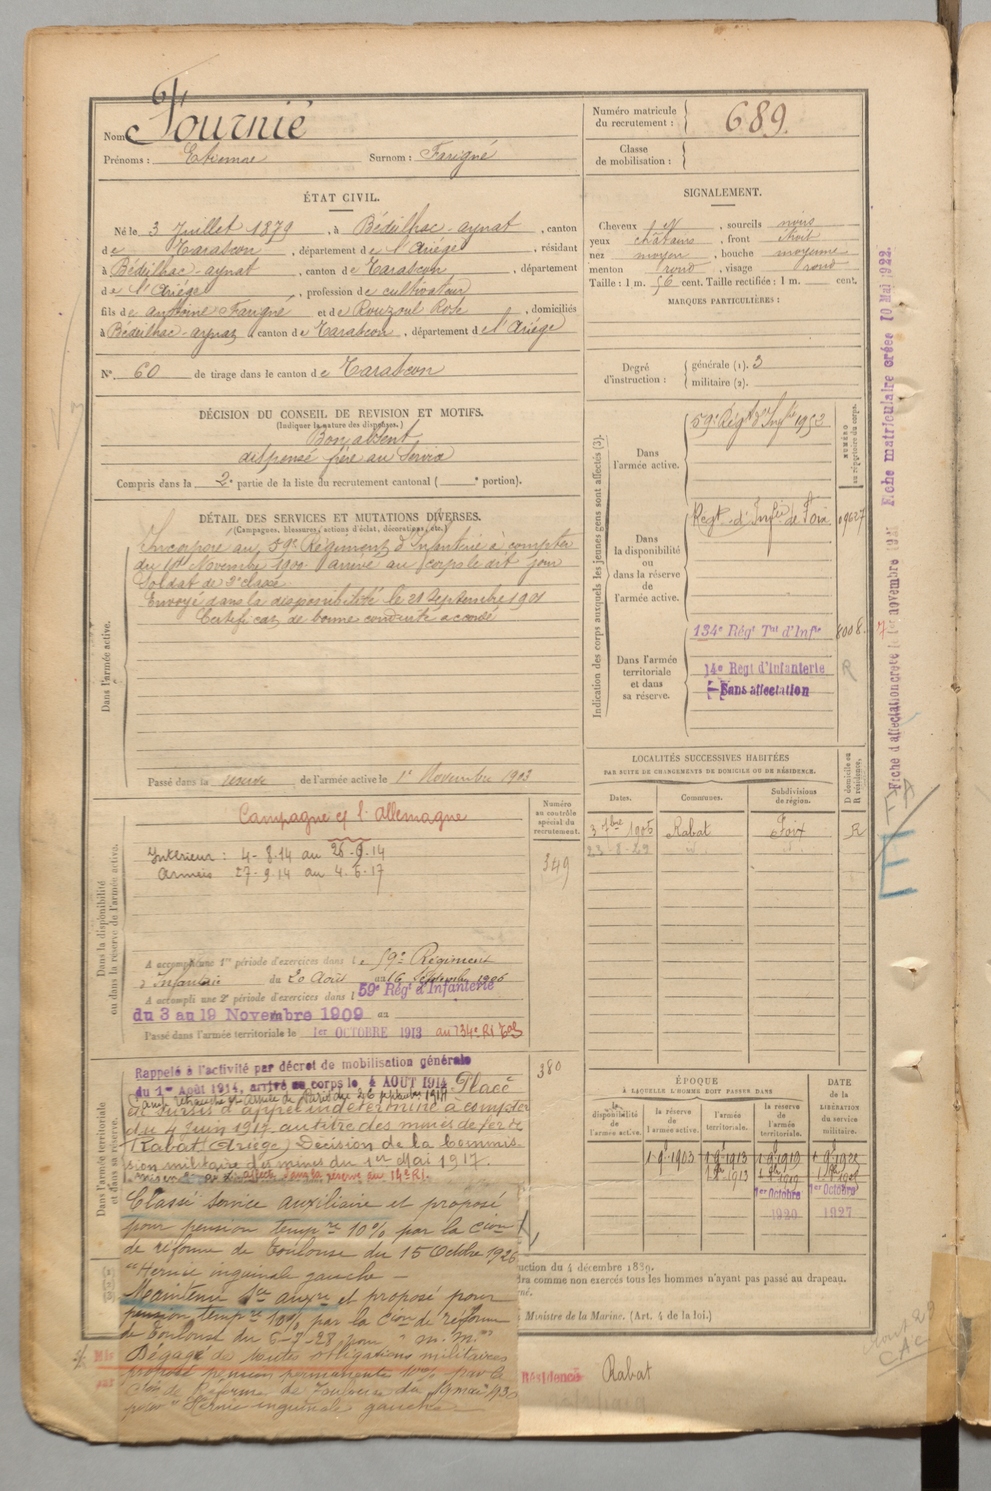 Nom Fournié
Prénoms : Etienne Surnom : Farigné
Numéro matricule du recrutement : 689
Classe de mobilisation :
ÉTAT CIVIL.
Né le 3 Juillet 1879, à Bédeilhac-aynat, canton
de Tarascon, département de l'Ariège, résidant
à Bédeilhac-aynat, canton de Tarascon, département
de l'Ariège, profession de cultivateur
fils de antoine Farigné et de Rouzoul Rose, domiciliés
à Bédeilhac-aynat canton de Tarascon, département de l'Ariège
N° 60 de tirage dans le canton de Tarascon
SIGNALEMENT.
Cheveux , sourcils noirs
yeux châtains, front étroit
nez moyen, bouche moyenne
menton rond, visage rond
Taille : 1 m. 56 cent. Taille rectifiée : 1 m. cent.
MARQUES PARTICULIÈRES :
Degré d'instruction : générale (1). 3
militaire (2).
DÉCISION DU CONSEIL DE REVISION ET MOTIFS.
(Indiquer la nature des dispenses.)
Bon absent
dispensé frère au service
Compris dans la 2e partie de la liste du recrutement cantonal ( e portion).
DÉTAIL DES SERVICES ET MUTATIONS DIVERSES.
(Campagnes, blessures, actions d'éclat, décorations, etc.)
Dans l'armée active.
Incorporé au 59e Régiment d'Infanterie à compter
du 1er Novembre 1900 arrivé au corps le dit jour
Soldat de 2e classe
Envoyé dans la disponibilité le 21 Septembre 1901
Certificat de bonne conduite accordé
Passé dans la réserve de l'armée active le 1er Novembre 1903
Indication des corps auxquels les jeunes gens sont affectés (3).
NUMÉRO au répertoire du corps.
Dans l'armée active.
59e Régt d'Infie
Dans la disponibilité ou dans la réserve de l'armée active.
Régt d'Infie de Foix
Dans l'armée territoriale et dans sa réserve.
134e Régt Tal d'Infie 8008
14e Regt d'Infanterie R
Sans affectation
Fiche d'affectation créée le 1er novembre Fiche matriculaire créée 10 Mai 1922.
LOCALITÉS SUCCESSIVES HABITÉES
PAR SUITE DE CHANGEMENTS DE DOMICILE OU DE RÉSIDENCE.
Dates. Communes. Subdivisions de région. D domicile ou R résidence.
3 7bre 1905 Rabat Foix R
23-8-29
Dans la disponibilité ou dans la réserve de l'armée active.
Numéro au contrôle spécial du recrutement.
349
Campagne c/ l'Allemagne
Intérieur : 4-8-14 au 26-9-14
Armées 27-9-14 au 4-6-17
A accompli une 1re période d'exercices dans le 59e Régiment
d'Infanterie du 20 Août au 16 Septembre 1906
A accompli une 2e période d'exercices dans l 59e Régt d'Infanterie
du 3 au 19 Novembre 1909 au
Passé dans l'armée territoriale le 1er OCTOBRE 1913 au 134e RI
Dans l'armée territoriale et dans sa réserve.
380
Rappelé à l'activité par décret de mobilisation générale
du 1er Août 1914, arrivé au corps le 4 AOUT 1914 Placé
en sursis d'appel indéterminé à compter
du 4 Juin 1917 au titre des mines de fer de
Rabat (Ariège) Décision de la Commis-
sion militaire des mines du 1er Mai 1917.
Classé service auxiliaire et proposé
pour pension tempre 10% par la Cion
de réforme de Toulouse du 15 Octobre 1926
"Hernie inguinale gauche –
Maintenu Sce auxre et proposé pour
pension tempre 10% par la Cion de réforme
de Toulouse du 6-7-28 pour "m. m."
Dégagé de toutes obligations militaires
proposé pension permanente 10% par la
Cion de Réforme de Toulouse du 19 mai 1930
pour "Hernie inguinale gauche –
ÉPOQUE
À LAQUELLE L'HOMME DOIT PASSER DANS
la disponibilité de l'armée active. la réserve de l'armée active. l'armée territoriale. la réserve de l'armée territoriale.
DATE de la LIBÉRATION du service militaire.
1er Octobre 1920
1er Octobre 1927
uction du 4 décembre 1889.
dra comme non exercés tous les hommes n'ayant pas passé au drapeau.
Ministre de la Marine. (Art. 4 de la loi.)
Résidence Rabat